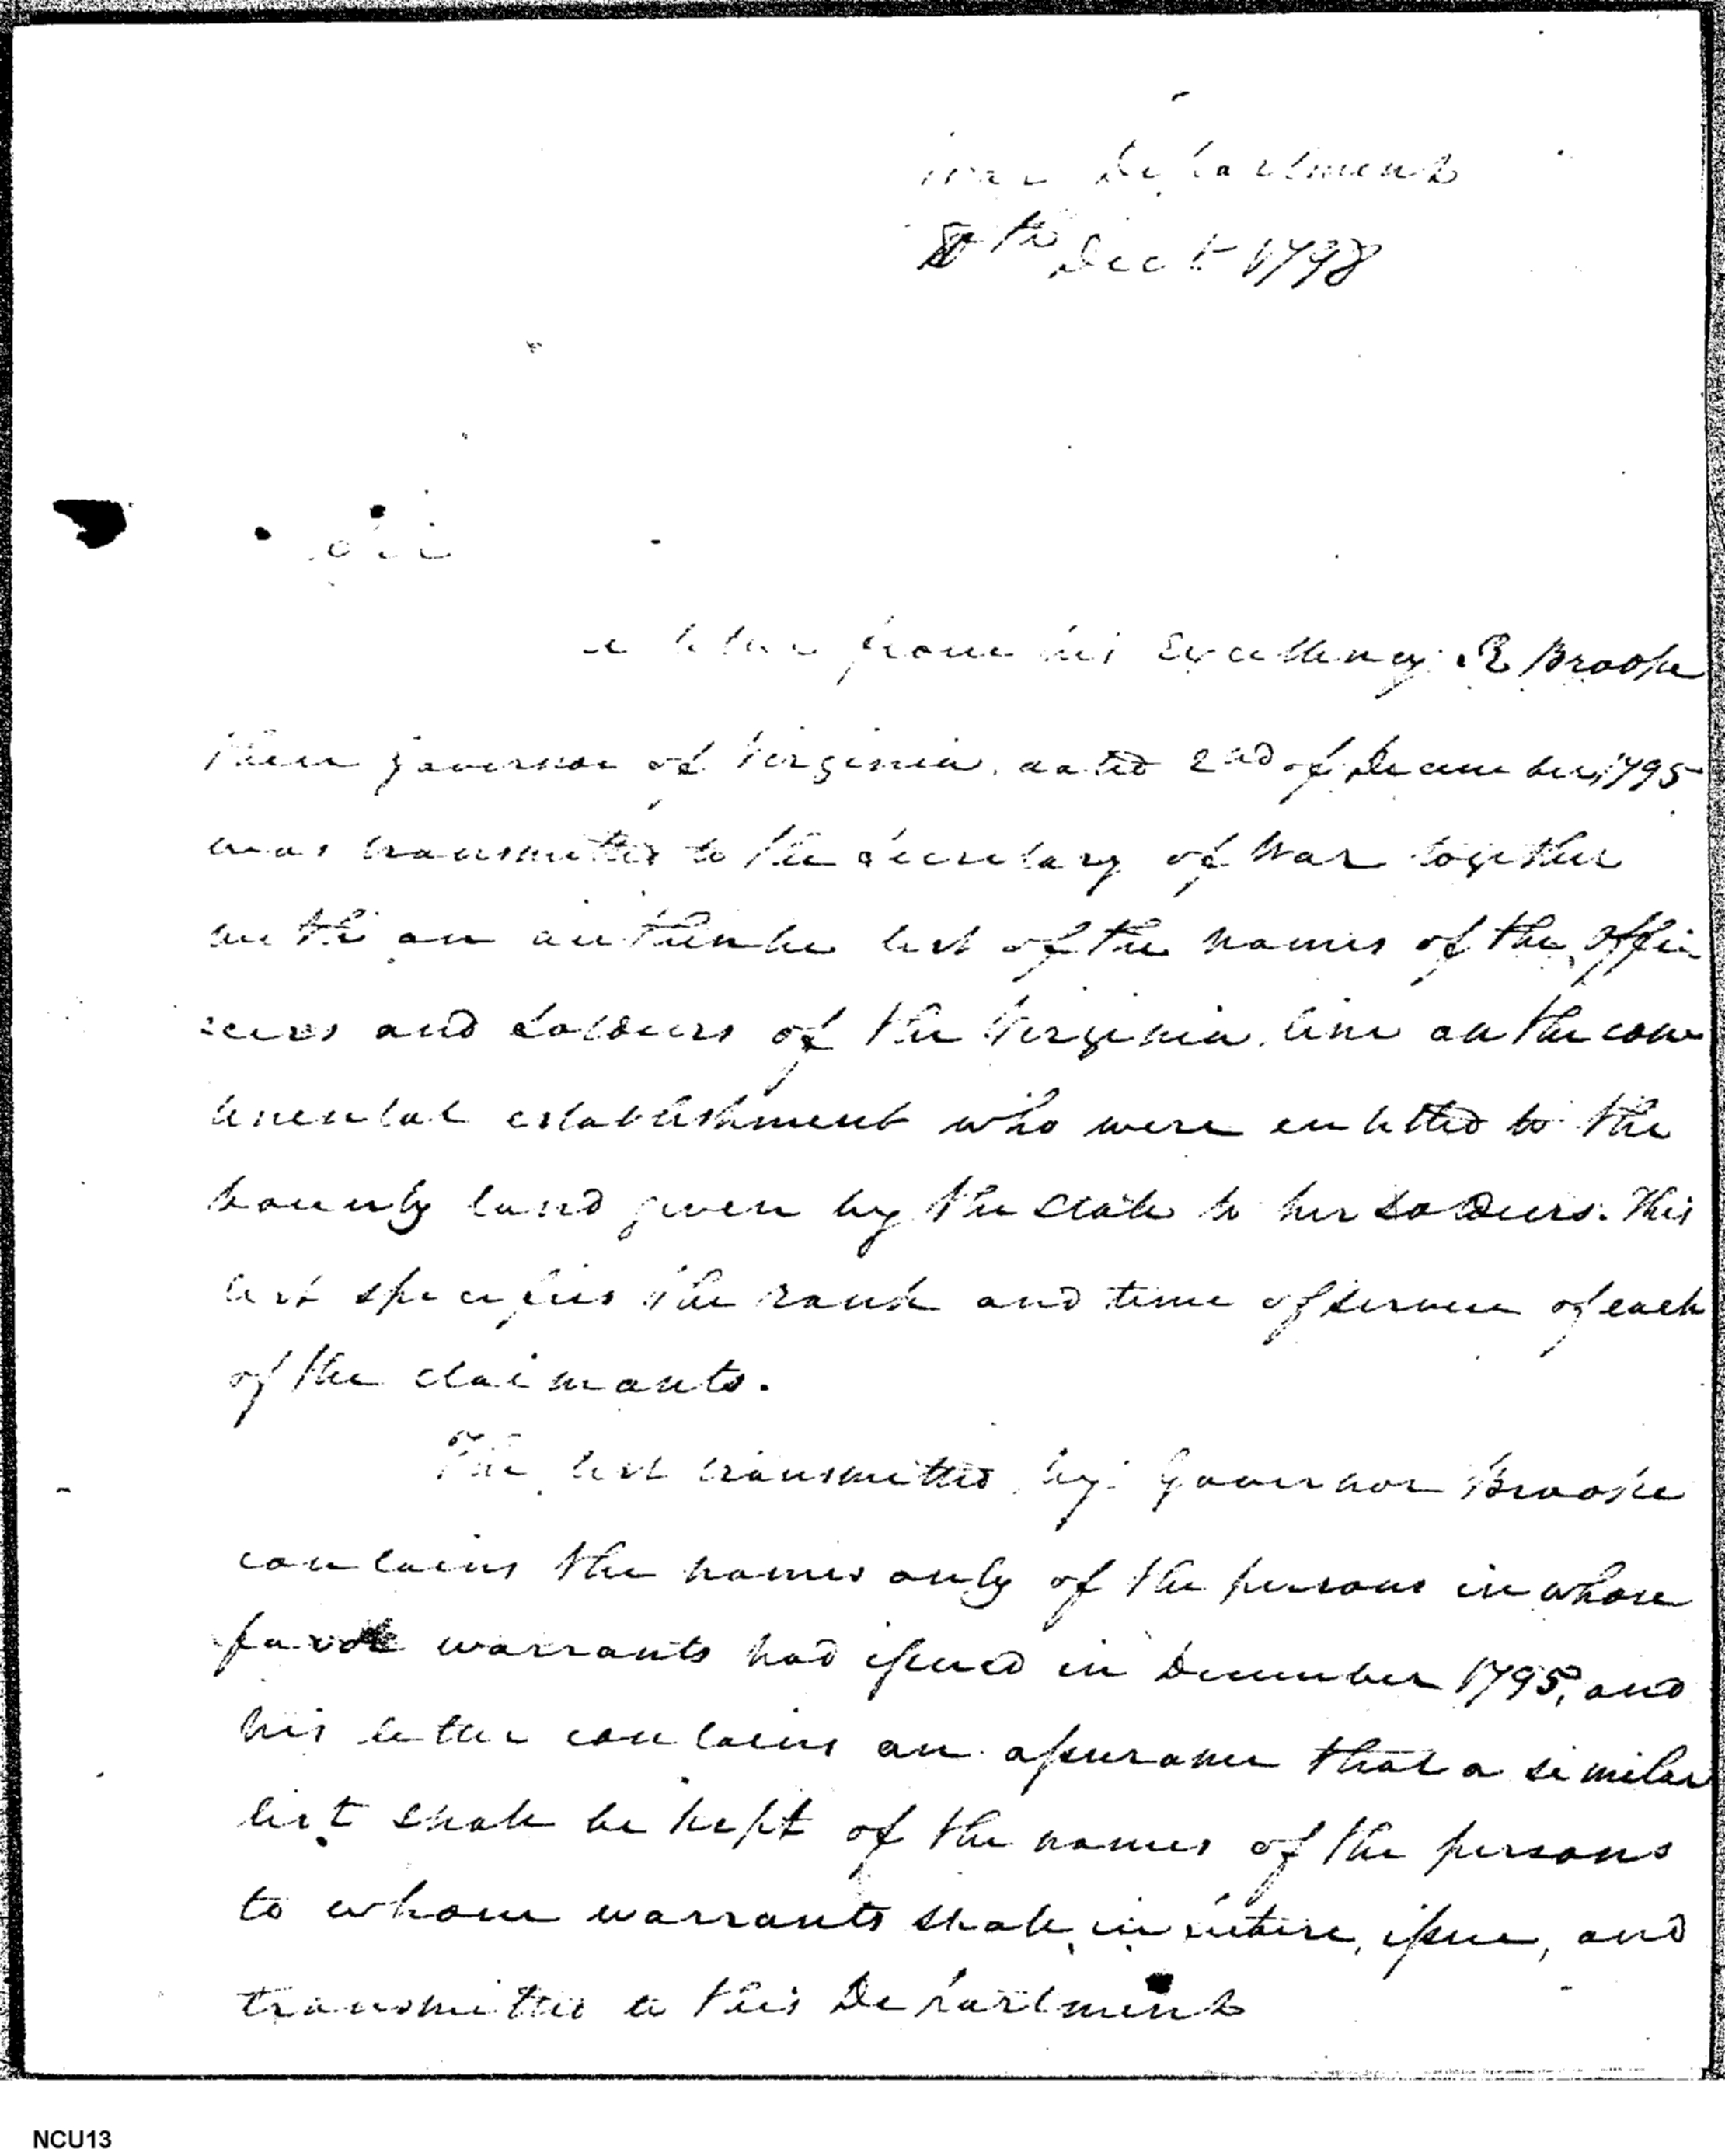 War Department
8th Decr 1798
Sir
a letter from his Excellency R Brooke
then governor of Virginia, dated 2nd of December, 1795
was transmitted to the Secretary of War together
with an authentic list of the names of the offi
cers and soldiers of the Virginia line on the con
tinental establishment who were entitled to the
bounty land given by the State to her soldiers. This
list specifies the rank and time of service of each
of the claimants.
The list transmitted by Governor Brooke
contains the names only of the persons in whose
favor warrants had issued in December 1795, and
his letter contains an assurance that a similar
list shall be kept of the names of the persons
to whom warrants shall, in future, issue, and
transmitted to this Department
NCU13